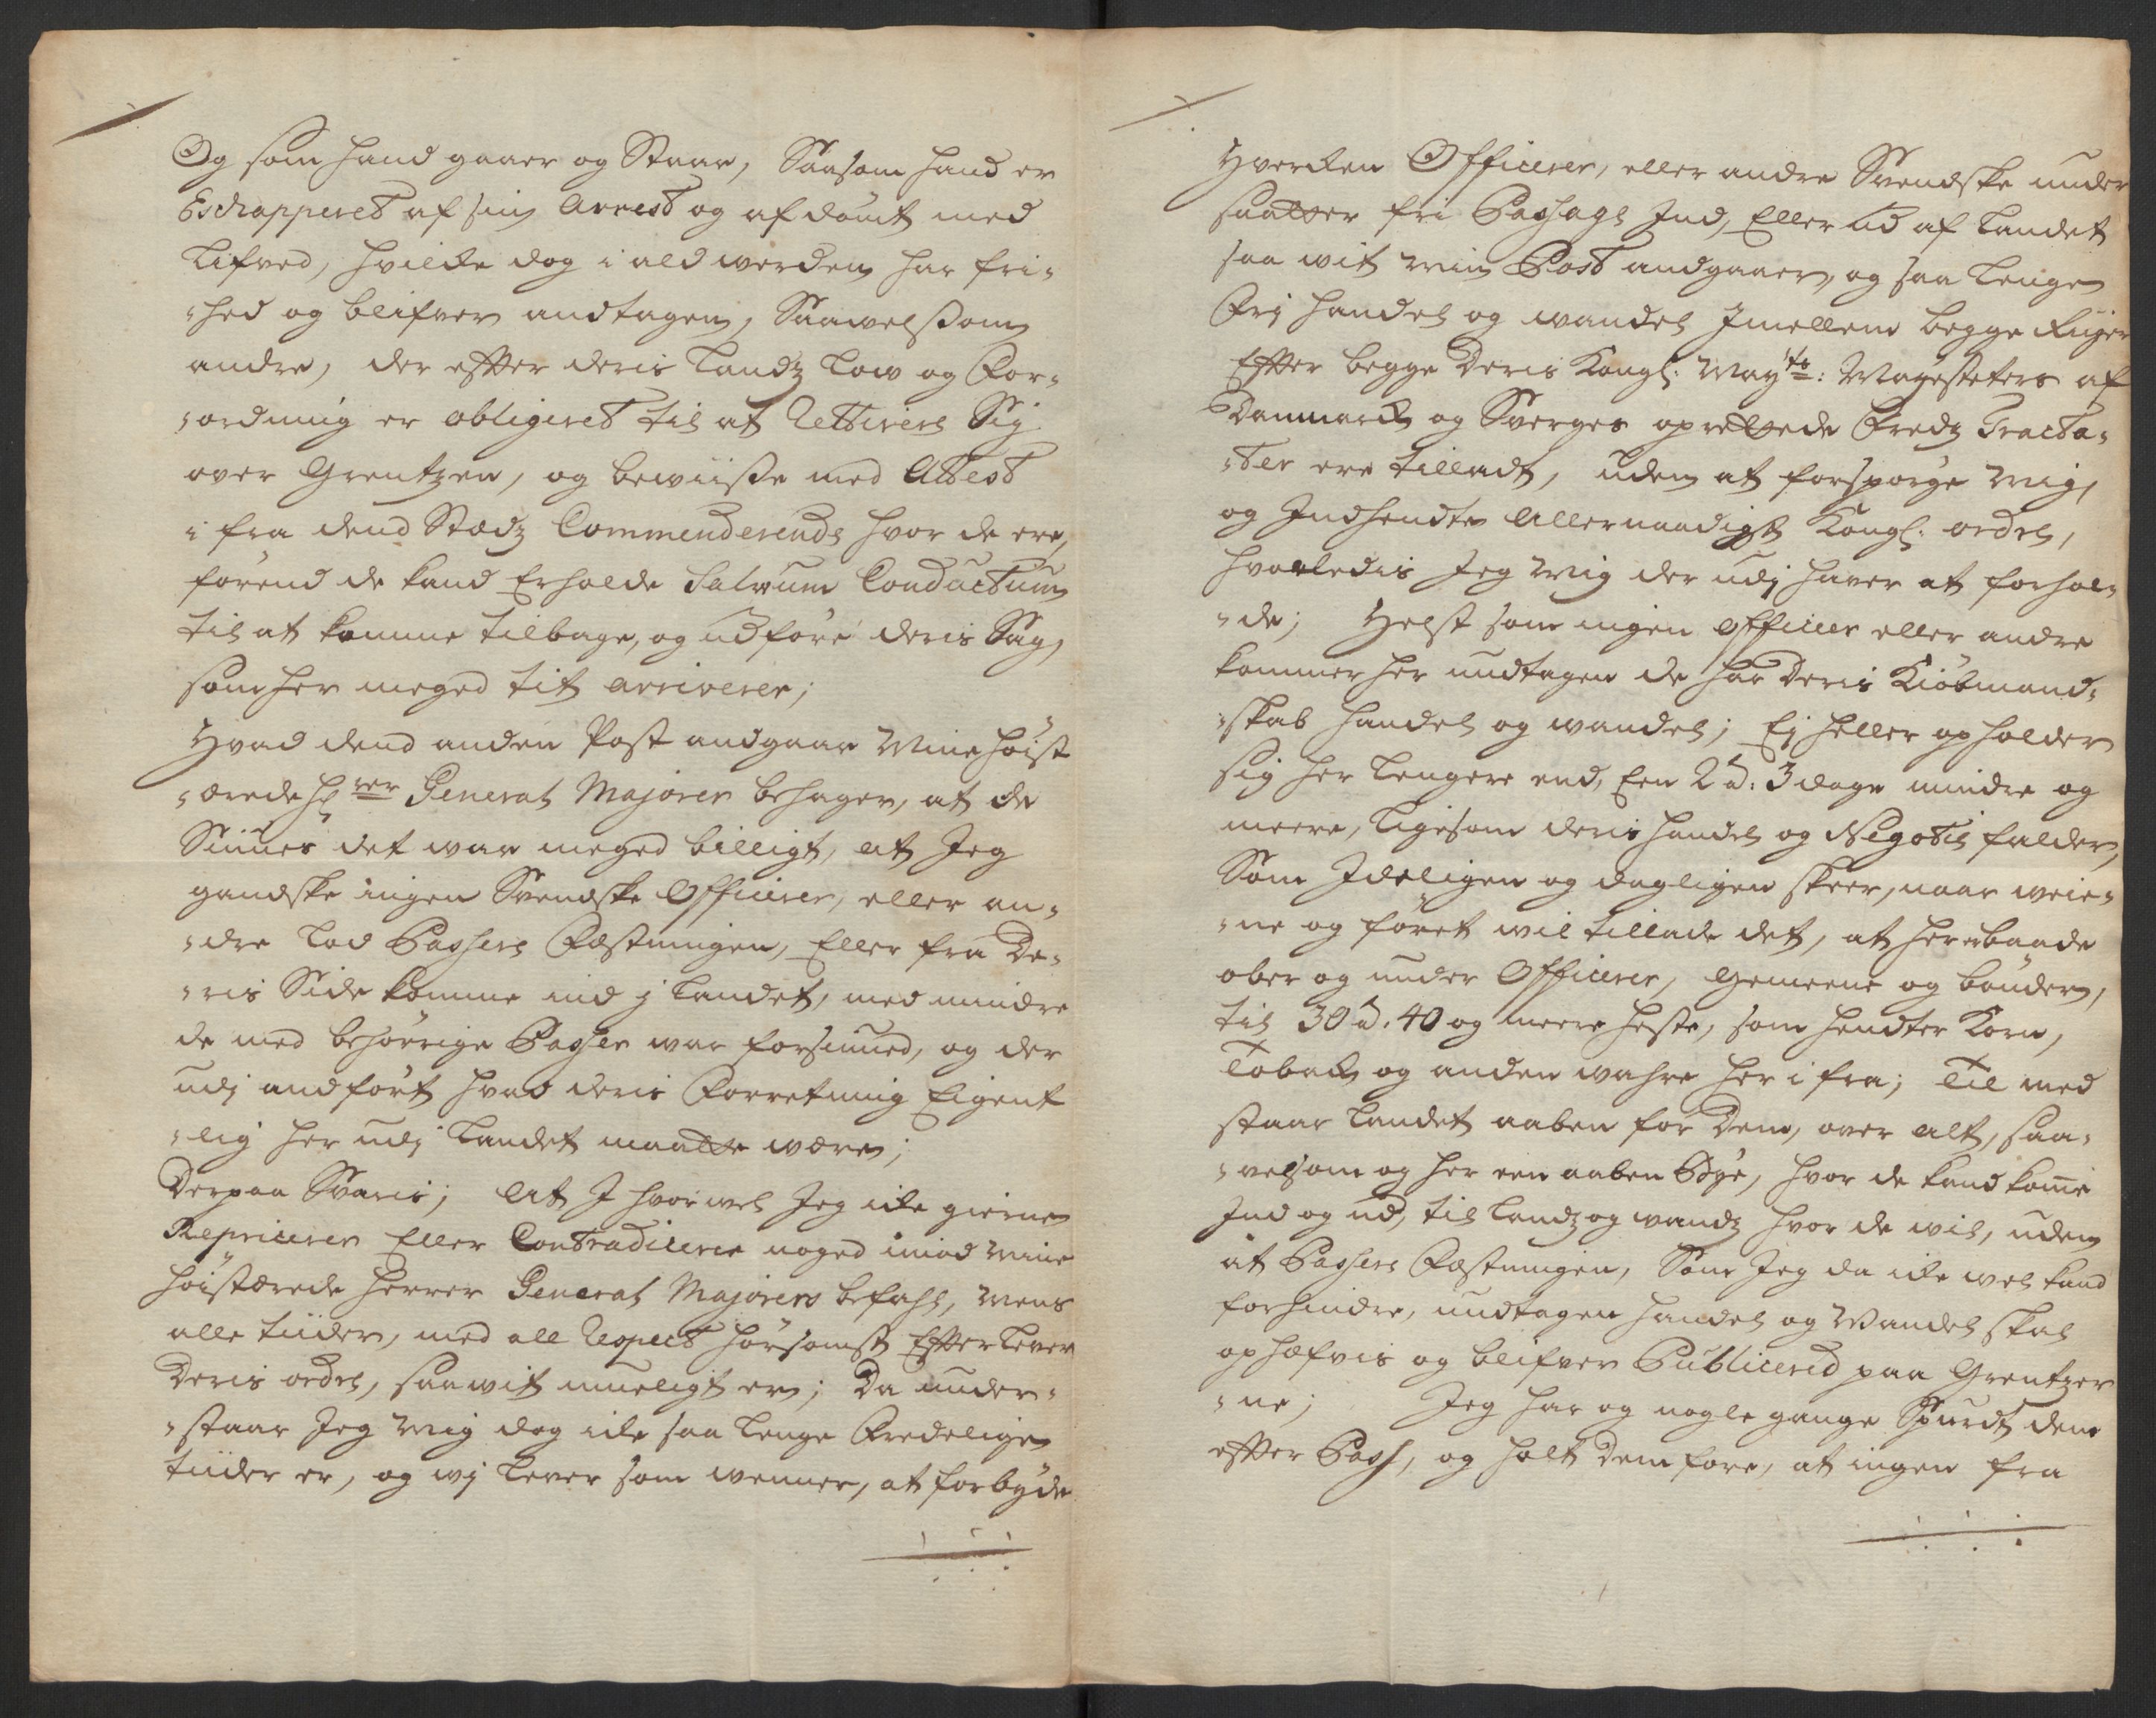 Og som hand gaaer og Staar, Saasom hand er
Eschapperet af sin Arrest og afdömt med
Lifved, hvilcke dog i ald werden har fri-
-hed og blifver andtagen, Saawelsom
andre, der effter deris Landz Low og For-
-ordning er obligeret til at Rettirere Sig
over Grentzen, og bewiisse med Attest
i fra dend Stædz Commenderende hvor de ere,
förend de kand Erholde Salvum Conductum
til at komme tilbage, og udföre deris Sag,
som her meged tit arriverer;
Hvad dend anden Post andgaar Mine höist
-ærede Hrrer General Majorer behager, at de
Siunes det war meged billigt, at Jeg
gandske ingen Svendske Officerer, eller an-
-dre lod Passere Fæstningen, Eller fra De-
-ris Side komme ind j Landet, med mindre
de med behörrige Passer war forsiuned, og der
udj andfört hvad deris Forretning Eigent
-lig her udj Landet maatte være;
Derpaa Svaris; At J hvorwel Jeg icke gierne
Repricerer Eller Contradicerer noged imod Mine
höistærede Herrer General Majorers befahl, Mens
alle tiider, med all Respect hörsomst Effterlever
Deris ordre, saawit mueligt er; Da under-
-staar Jeg Mig dog icke saa lenge Fredelige
tiider er, og wj lever som wenner, at forbyde
Hvercken Officerer, eller andre Svendske under
saatter fri Passage Ind, Eller ud af Landet
saa wit min Post andgaaer, og saa lenge
Frj handel og wandel Jmellem begge Riiger
Effter begge Deris Kongl: Mayts: Mayesteters af
Danmarck og Sverges oprettede Freds Tracta-
-ter ere tilladt, uden at forspörge Mig,
og Indhendte Allernaadigst Kongl: ordre,
hvorledis Jeg Mig der udj haver at forhol-
-de; Helst som ingen officer eller andre
kommer her undtagen de har Deris Kiöbmand-
-skab handel og wandel; Ej heller opholder
sig her lengere end, Een 2 à: 3 dage mindre og
meere, ligesom deris handel og Negotie falder,
Som Jdeligen og dagligen skeer, naar weie-
-ne og föret wil tillade det, at her er baade
ober og under Officerer, Gemeene og bönder,
til 30 à. 40 og meere heste, som hendter Korn,
Toback og anden wahre her i fra; Til med
staar Landet aaben for Dem, over alt, saa-
-velsom og her een aaben Bye, hvor de kand kome
Ind og ud, til Landz og wandz hvor de wil, uden
at Passere Fæstningen, Som Jeg da icke wel kand
forhindre, undtagen handel og Wandel skal
ophæfvis og blifver Publicered paa Grentzer
-ne; Jeg har og nogle gange Spurdt dem
effter Pass, og holt Dem fore, at ingen fra